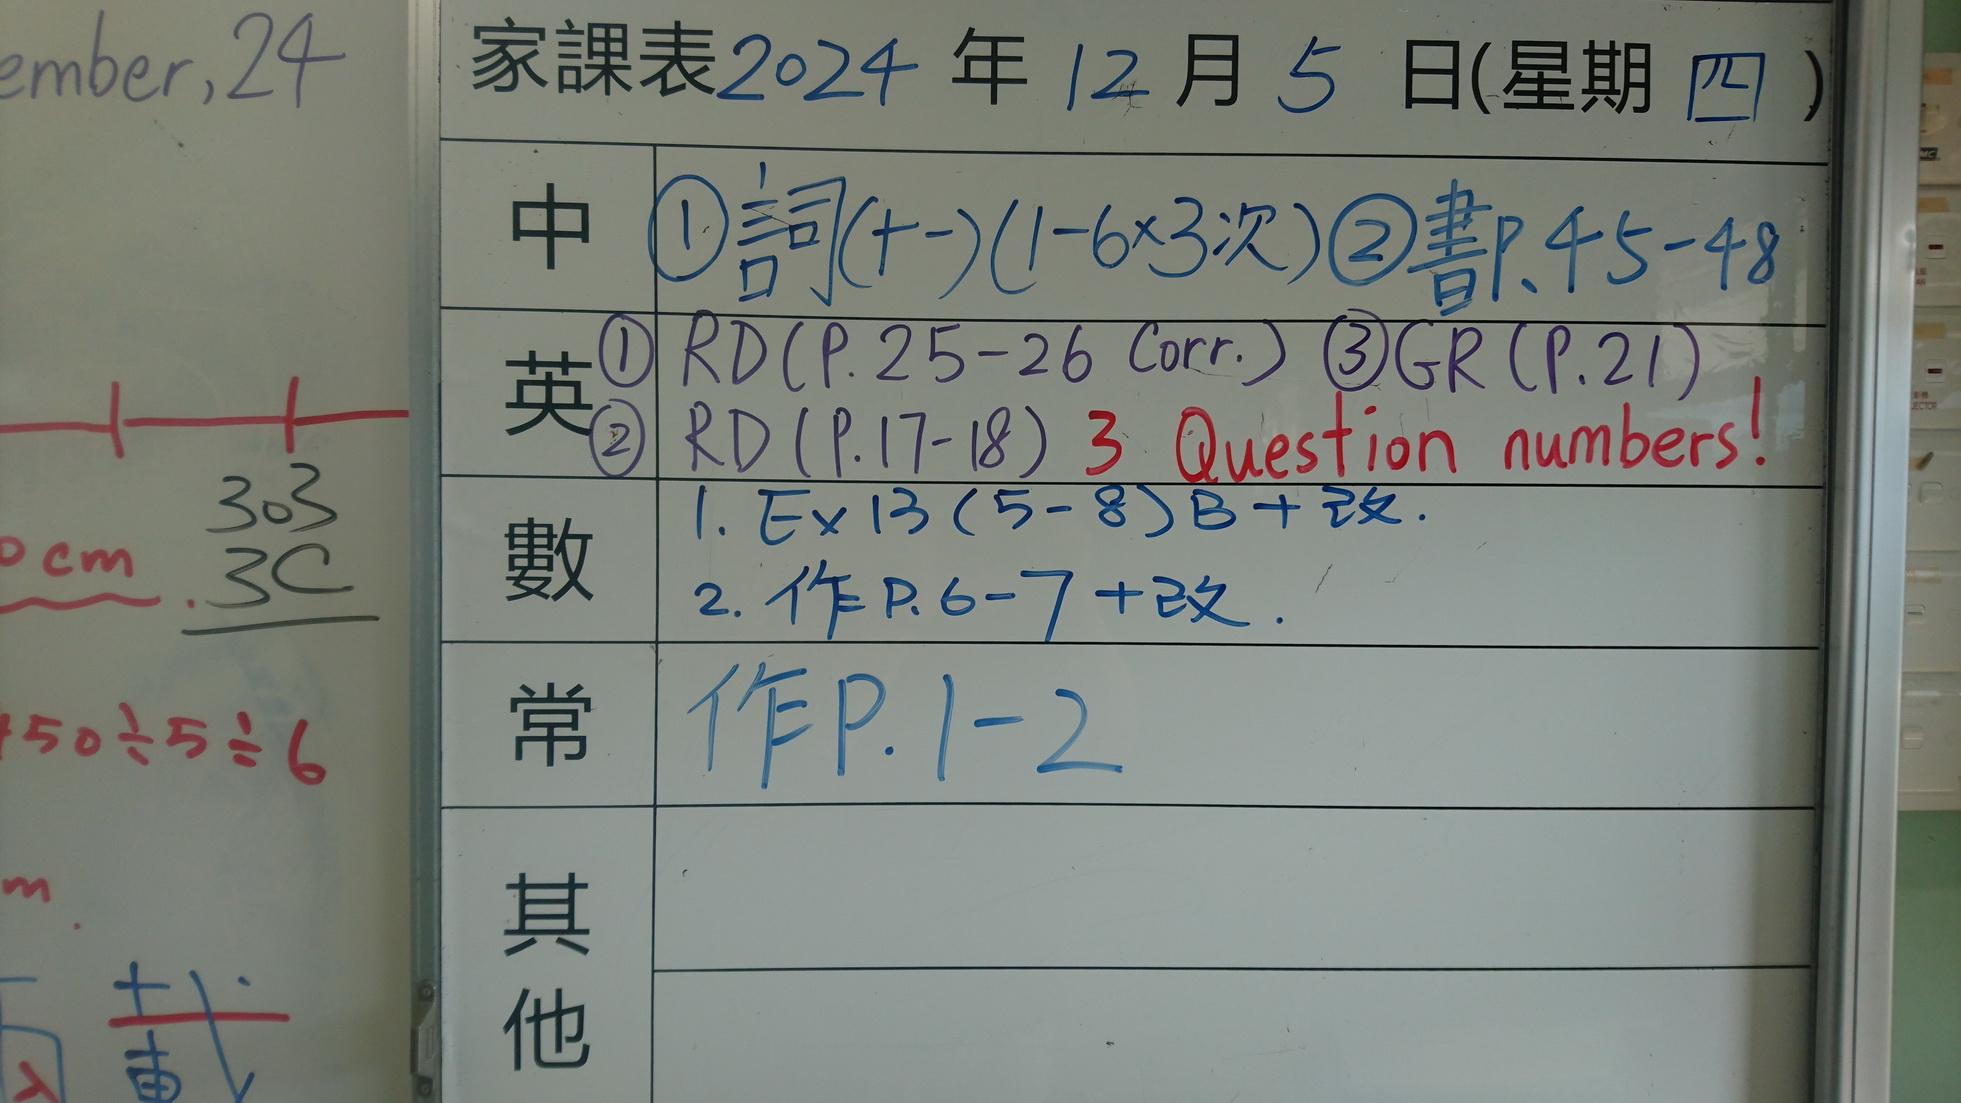 ember, 24
303
3C
0 cm
450÷5÷6
m
家課表2024 年 12 月 5 日(星期 四 )
中 ①詞(十一)(1-6×3次)②書P.45-48
英 ① RD (P.25-26 Corr.) ③GR (P.21)
② RD (P.17-18) 3 Question numbers!
數 1. Ex 13 (5-8) B + 改.
2. 作 P.6-7 + 改.
常 作P.1-2
其他